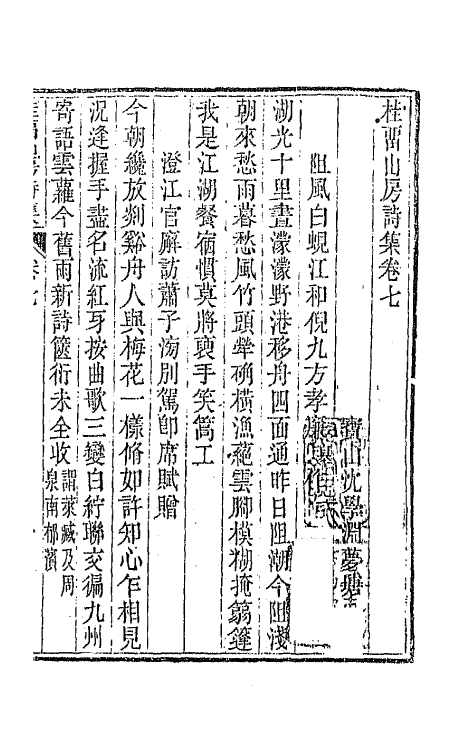 桂畱山房詩集卷七
寶山沈學淵夢塘
阻風白蜆江和倪九方孝廉
湖光十里晝濛濛野港移舟四面通昨日阻潮今阻淺
朝來愁雨暮愁風竹頭犖确橫漁蒓雲腳模糊掩篛篷
我是江湖餐宿慣莫將東手笑篙工
澄江官廨訪蕭子滂別駕卽席賦贈
今朝纔放剡谿舟人與梅花一樣脩如許知心乍相見
況逢握手盡名流紅身按曲歌三變白紵聯交徧九州
寄語雲蘿今舊雨新詩篋衍未全收謂萊臧及周泉南郁濱
卷七